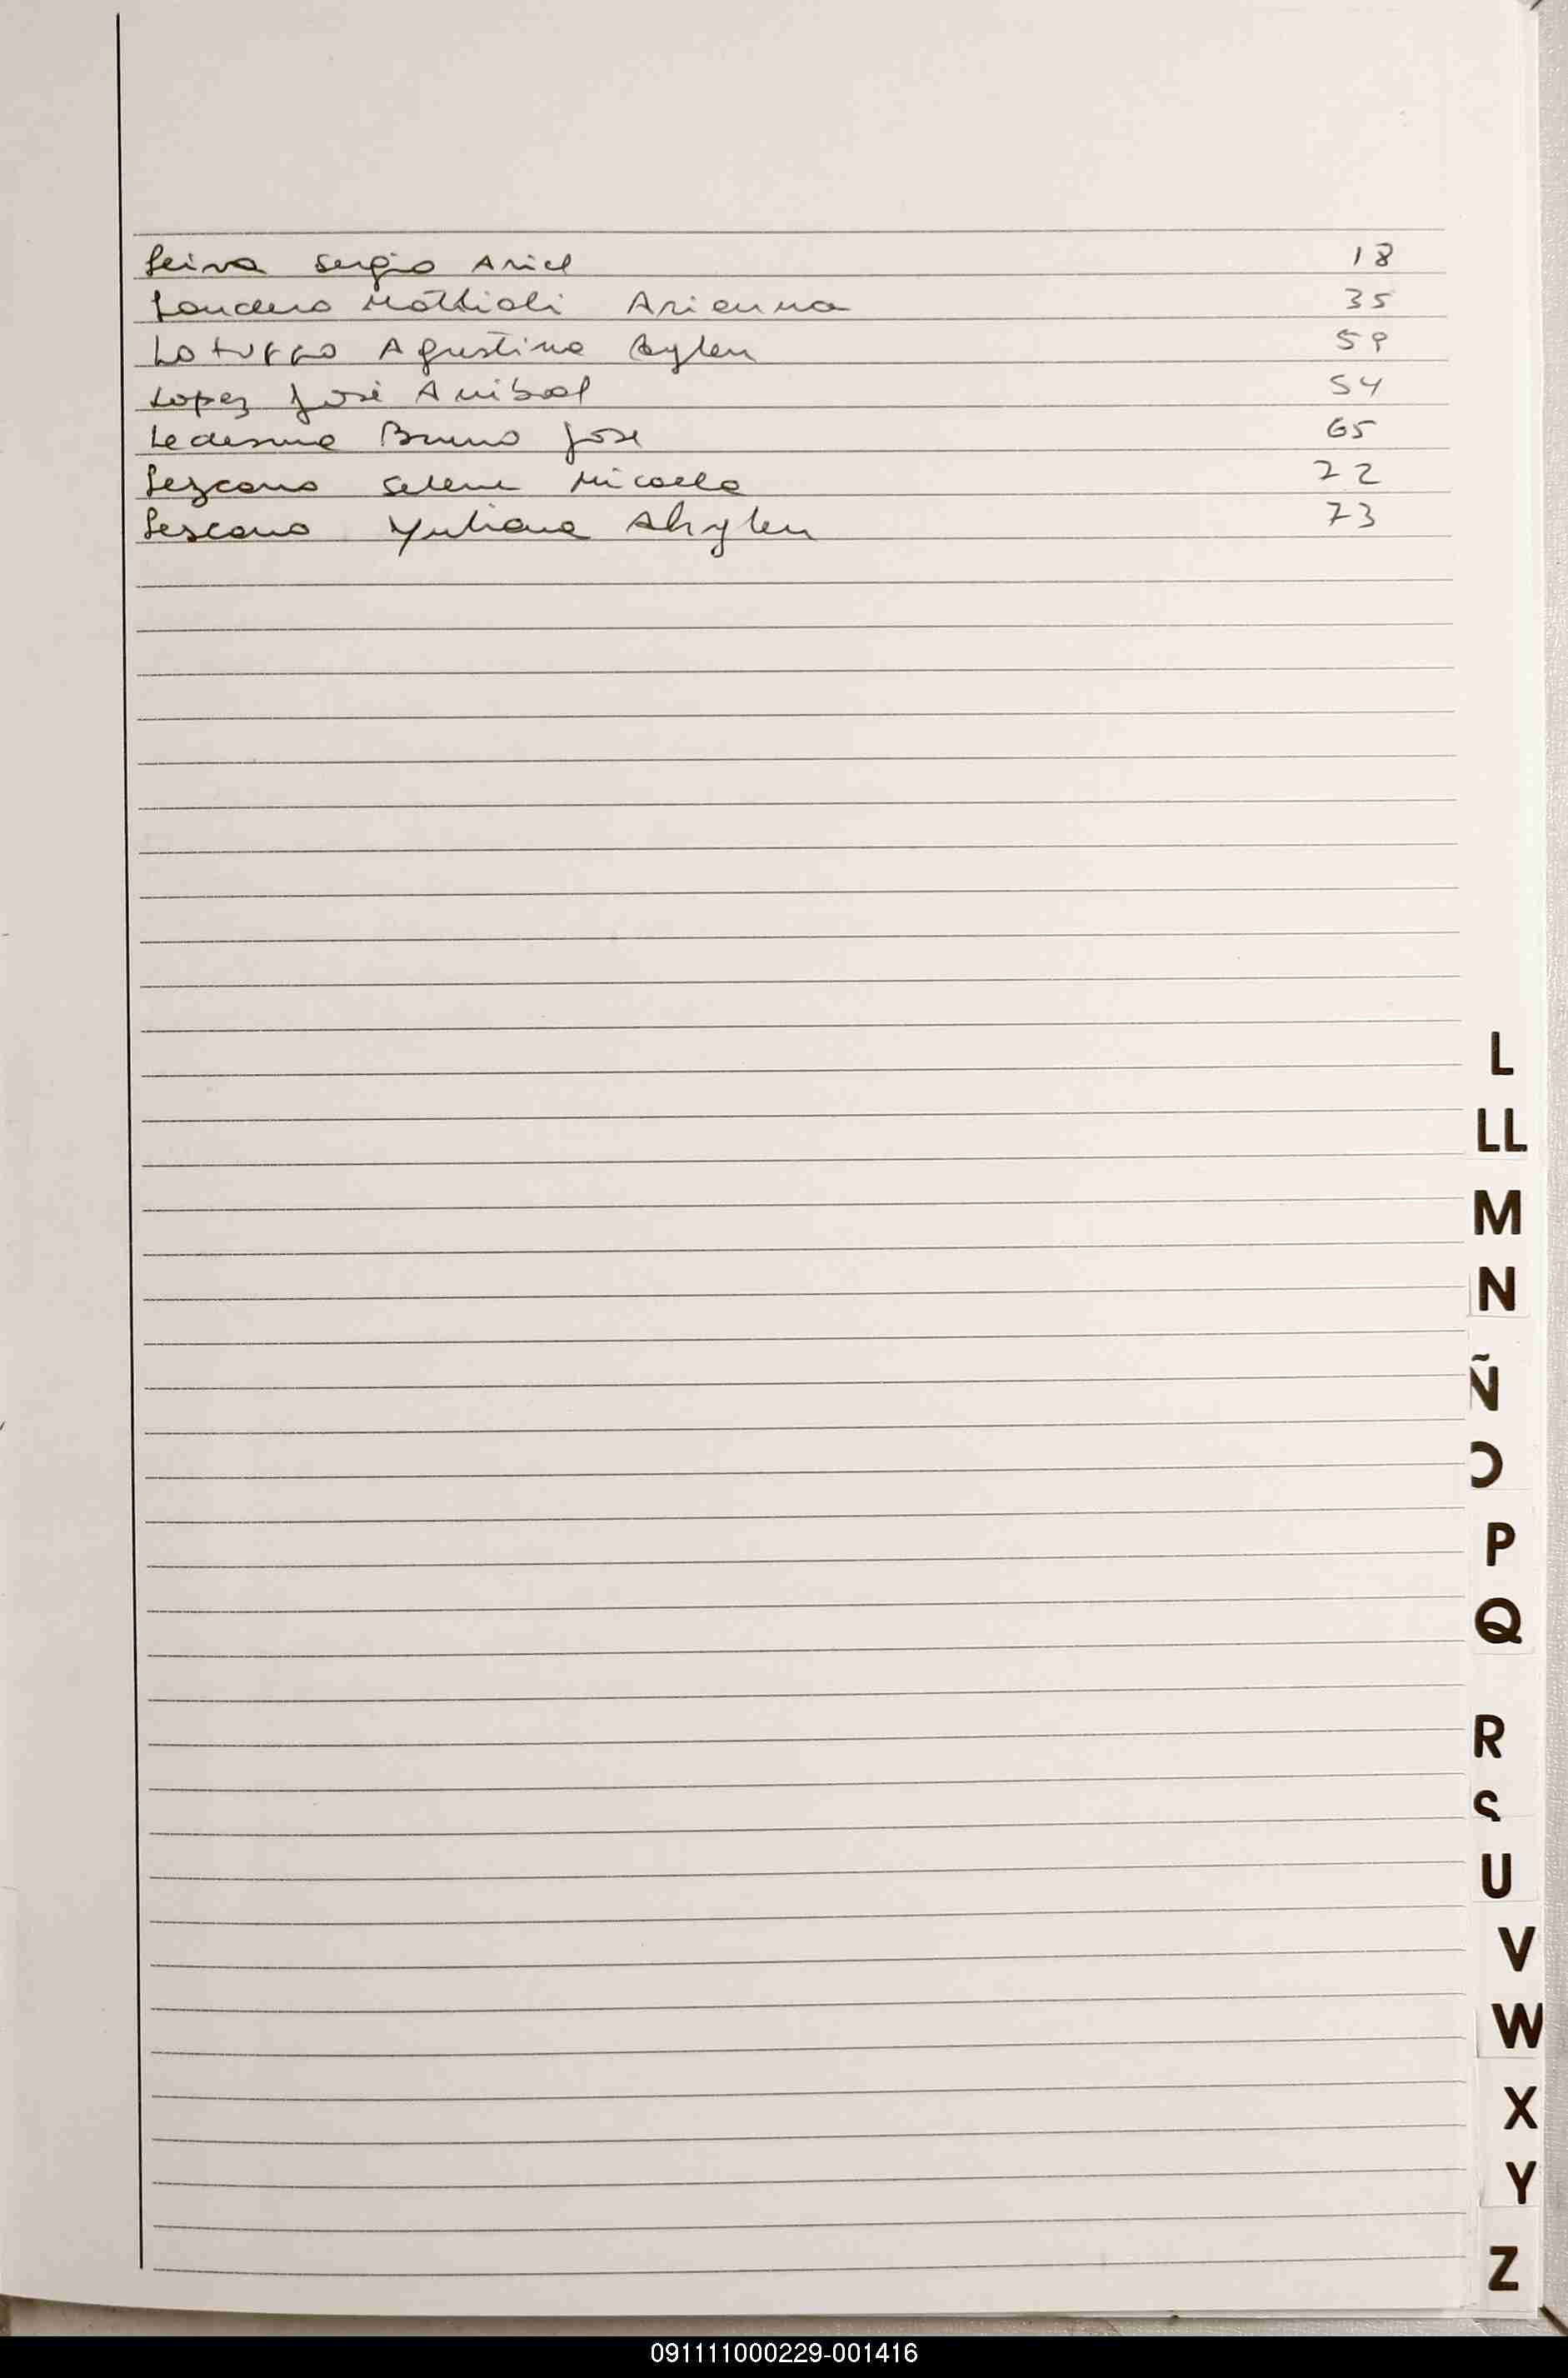 Leiva Sergio Ariel 18
Londero Mattioli Arienna 35
Lo turco Agustina Aylen 59
Lopez José Anibal 54
Ledesma Bruno Jose 65
Lezcano Selene Micaela 72
Lescano Yuliana Ahylen 73
L
LL
M
N
Ñ
O
P
Q
R
S
U
V
W
X
Y
Z
091111000229-001416